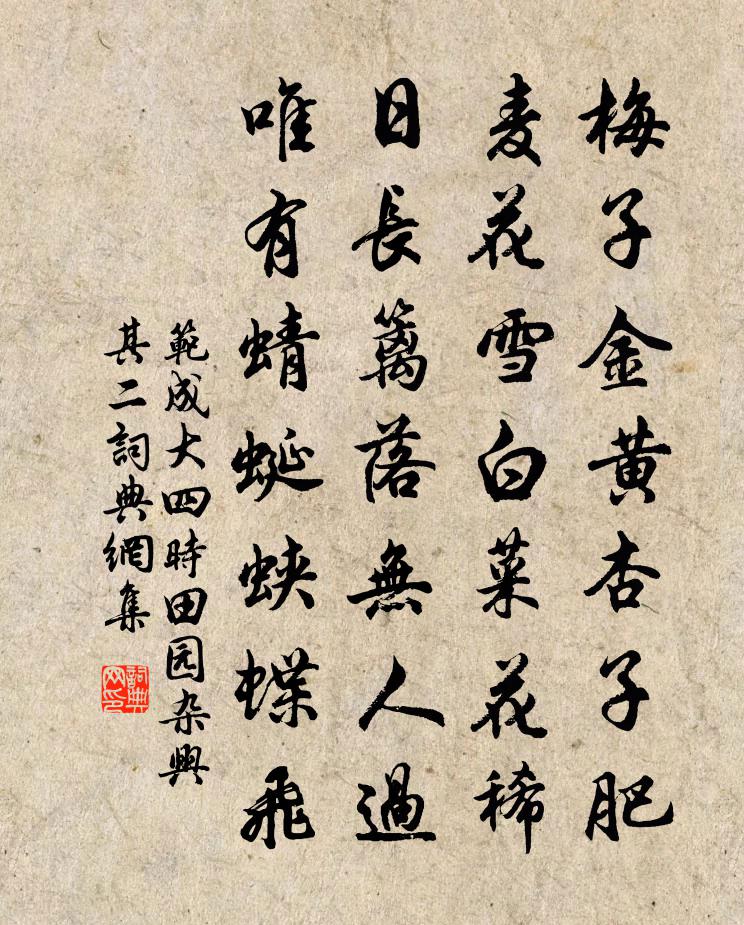 梅子金黄杏子肥
麦花雪白菜花稀
日長籬落無人過
唯有蜻蜓蛺蝶飛
範成大四時田园杂興
其二詞典網集
詞典网印